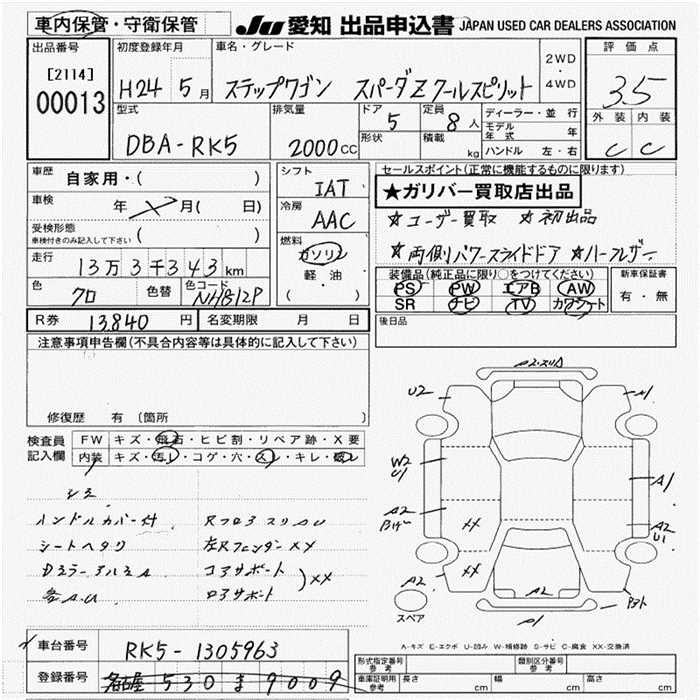 車内保管・守衛保管
JU 愛知 出品申込書 JAPAN USED CAR DEALERS ASSOCIATION
出品番号 初度登録年月 車名・グレード 2WD・4WD 評価点
[2114] 00013 H24 5月 ステップワゴン スパーダZクールスピリット 3.5
型式 排気量 ドア 定員 ディーラー・並行 外装 内装
DBA-RK5 2000CC 5 8人 モデル年式 年 C C
形状 積載 kg ハンドル 左・右
車歴 自家用・( ) シフト IAT セールスポイント(正常に機能するものに限ります)
車検 年 月( 日) 冷房 AAC ★ガリバー買取店出品
受検形態 車検付きのみ記入して下さい ( ) ★ユーザー買取 ★初出品
走行 13万3千343km 燃料 ガソリン 軽・油 ( ) ★両側パワースライドドア ★ハーフレザー
色 クロ 色替 色コード NH812P 装備品(純正品に限り○をつけてください) 新車保証書
PS PW エアB AW 有・無
SR ナビ TV カワシート
R券 13,840円 名変期限 月 日 後日品
注意事項申告欄(不具合内容等は具体的に記入して下さい)
修復歴 有 〔箇所 〕
検査員記入欄 FW キズ・飛石・ヒビ割・リペア跡・X要
内装 キズ・汚レ・コゲ・穴・スレ・キレ・破レ
シミ
ハンドルカバー付
シートヘタリ
左Rフェンダー XX
コアサポート
ロアサポート
XX
各A.U
U2
A1
W2
U1
A1
A2
A2
U1
XX
XX
A2
A2
スペア
A-キズ E-エクボ U-凹み W-補修跡 S-サビ C-腐食 XX-交換済
車台番号 RK5-1305963
登録番号 名古屋 530 ま 9009
形式指定番号 参考 類別区分番号 参考
車庫証明用 参考 長さ cm 幅 cm 高さ cm